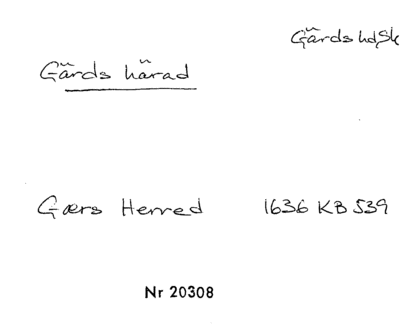 Gärds hd, Sk
Gärds härad
Gærs Herred 1636 KB 539
Nr 20308